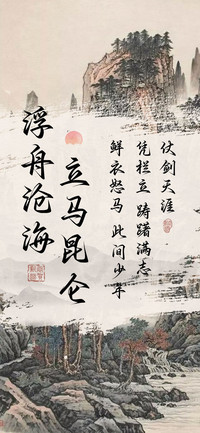 仗剑天涯
凭栏立 踌躇满志
鲜衣怒马 此间少年
立马昆仑
浮舟沧海